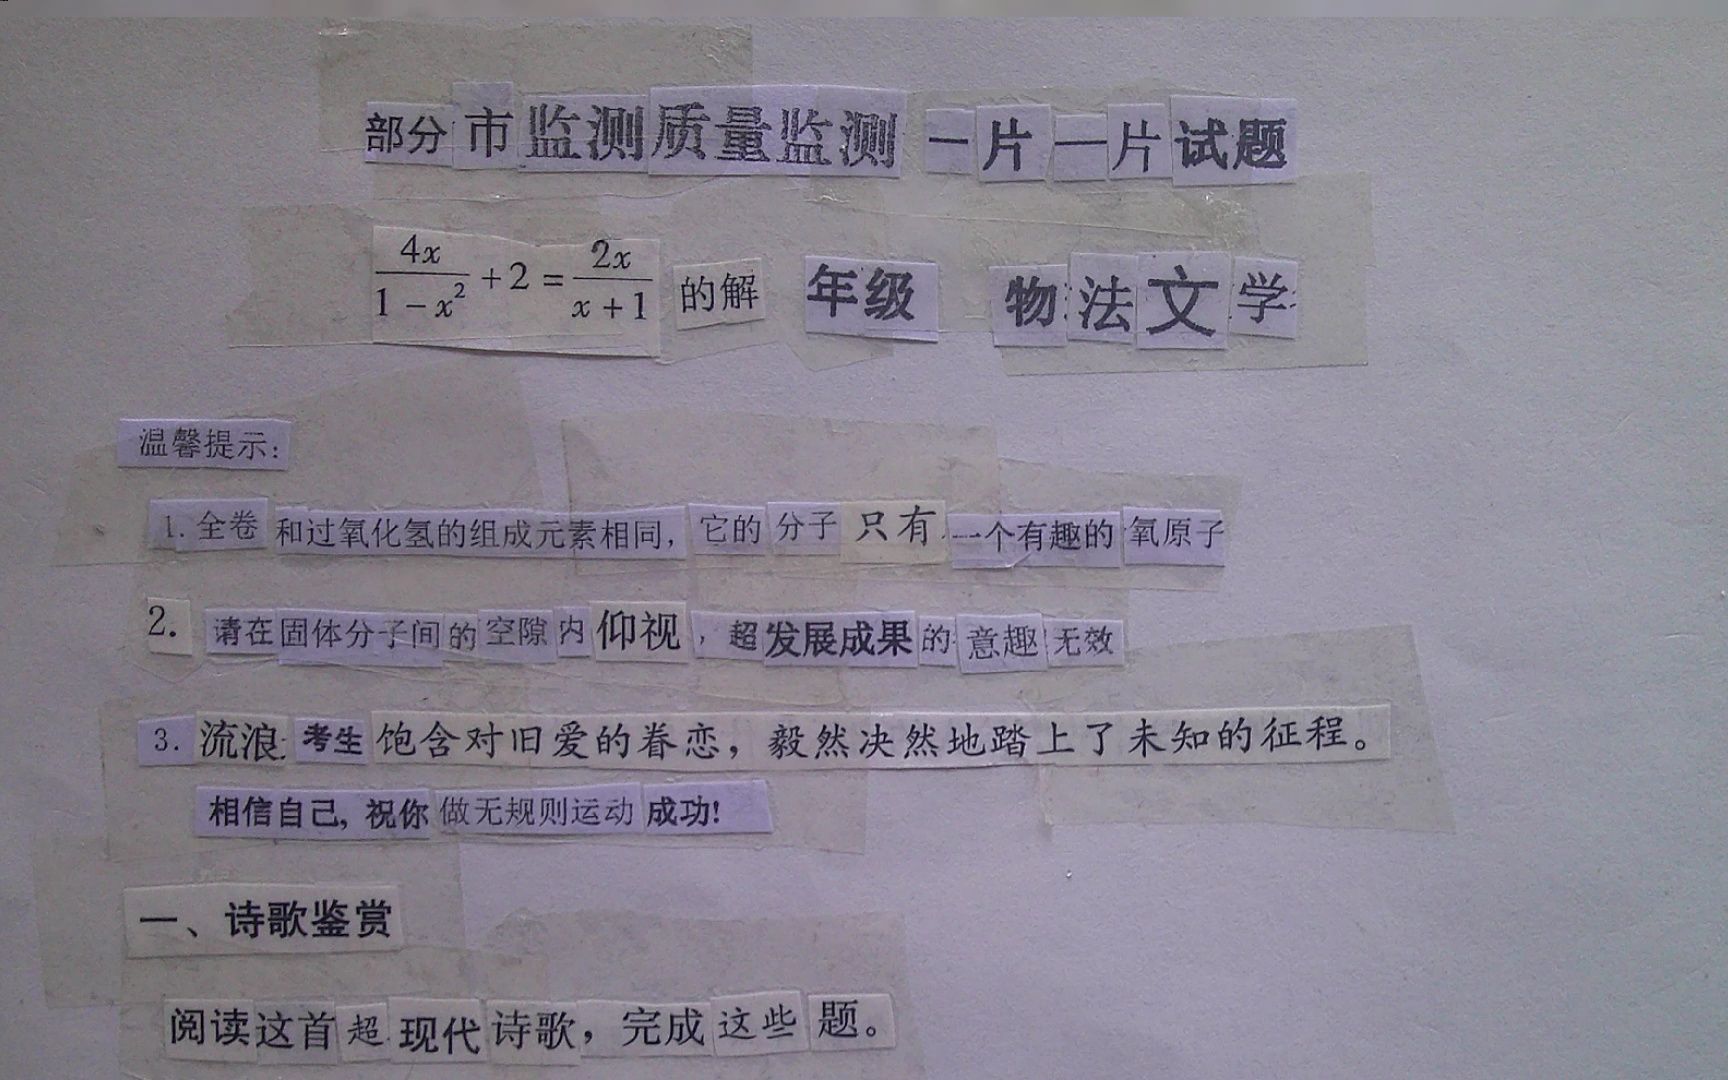 部分市监测质量监测一片一片试题
4x/(1-x²)+2=2x/(x+1) 的解 年级 物法文学
温馨提示:
1. 全卷和过氧化氢的组成元素相同,它的分子只有一个有趣的氧原子
2. 请在固体分子间的空隙内仰视,超发展成果的意趣无效
3. 流浪考生饱含对旧爱的眷恋,毅然决然地踏上了未知的征程。
相信自己,祝你做无规则运动成功!
一、诗歌鉴赏
阅读这首超现代诗歌,完成这些题。